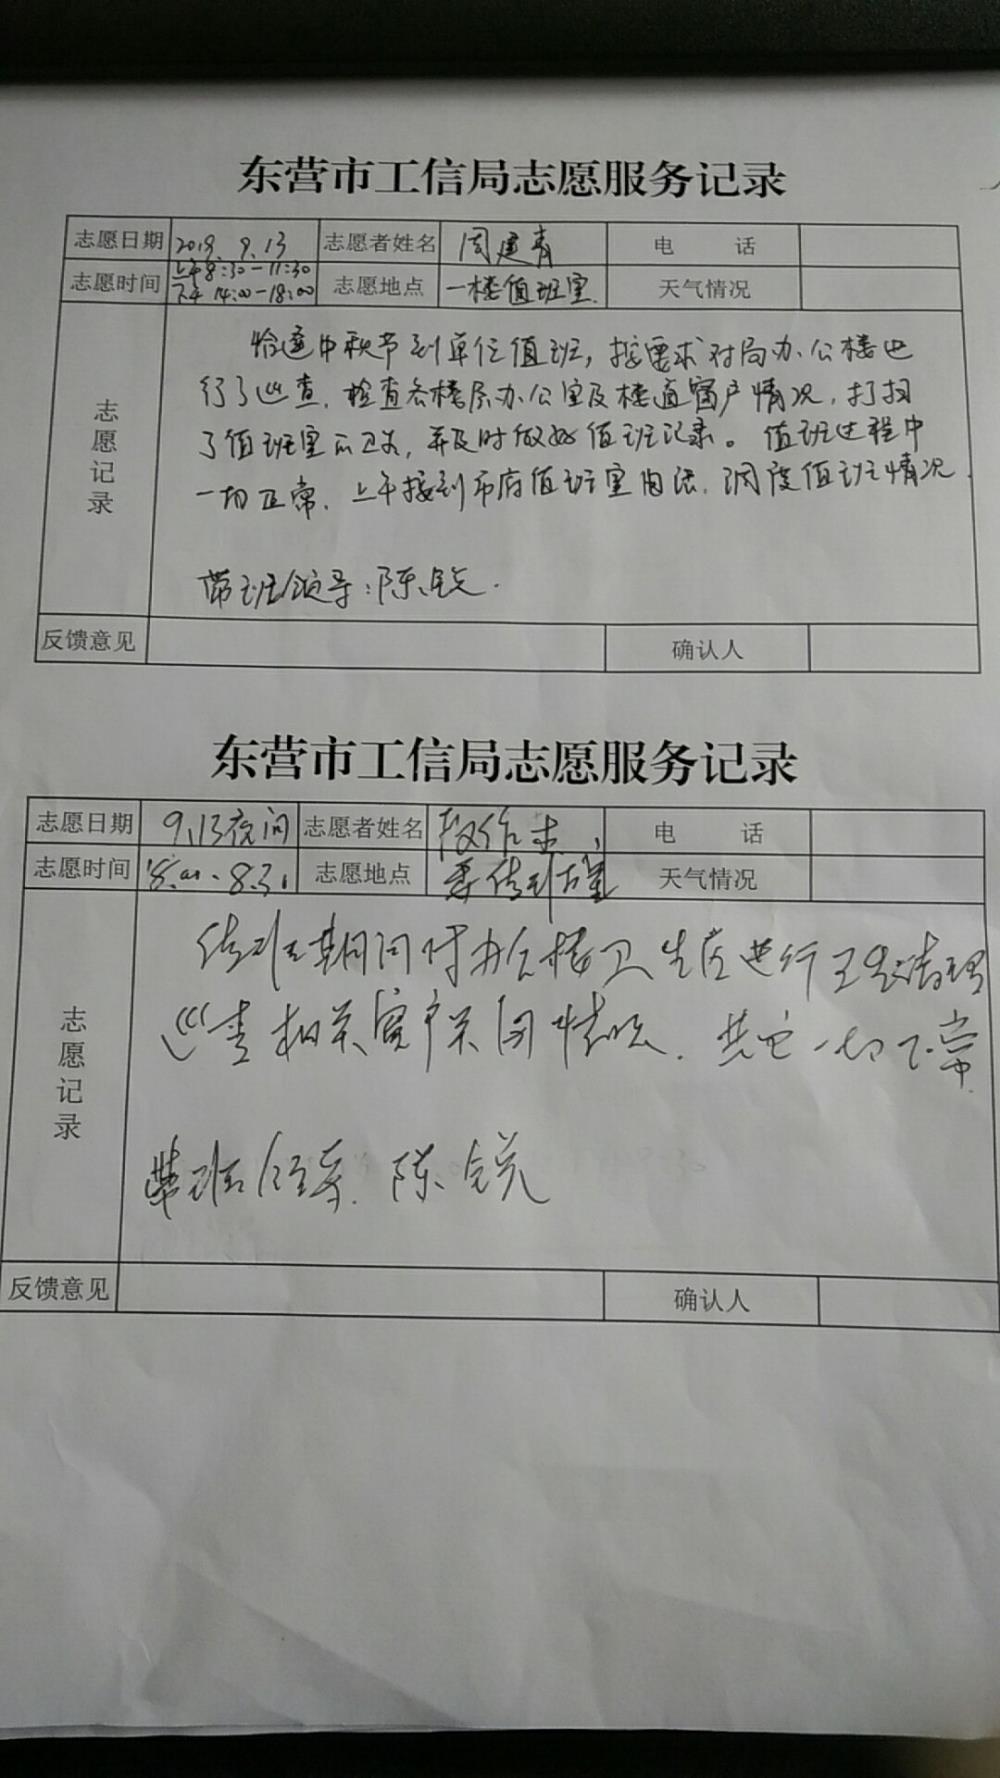 东营市工信局志愿服务记录
志愿日期 2019.9.13 志愿者姓名 周建青 电 话
志愿时间 上午8:30-11:30 下午14:00-18:00 志愿地点 一楼值班室 天气情况
志愿记录
恰逢中秋节到单位值班，按要求对局办公楼进
行了巡查，检查各楼层办公室及楼道窗户情况，打扫
了值班室的卫生，并及时做好值班记录。值班过程中
一切正常，上午接到市府值班室电话，调度值班情况．
带班领导：陈锐．
反馈意见 确认人
东营市工信局志愿服务记录
志愿日期 9.13夜间 志愿者姓名 电 话
志愿时间 志愿地点 天气情况
志愿记录
值班期间对办公楼卫生区进行卫生清理
巡查相关窗户关闭情况．其它一切正常
带班领导．陈锐
反馈意见 确认人